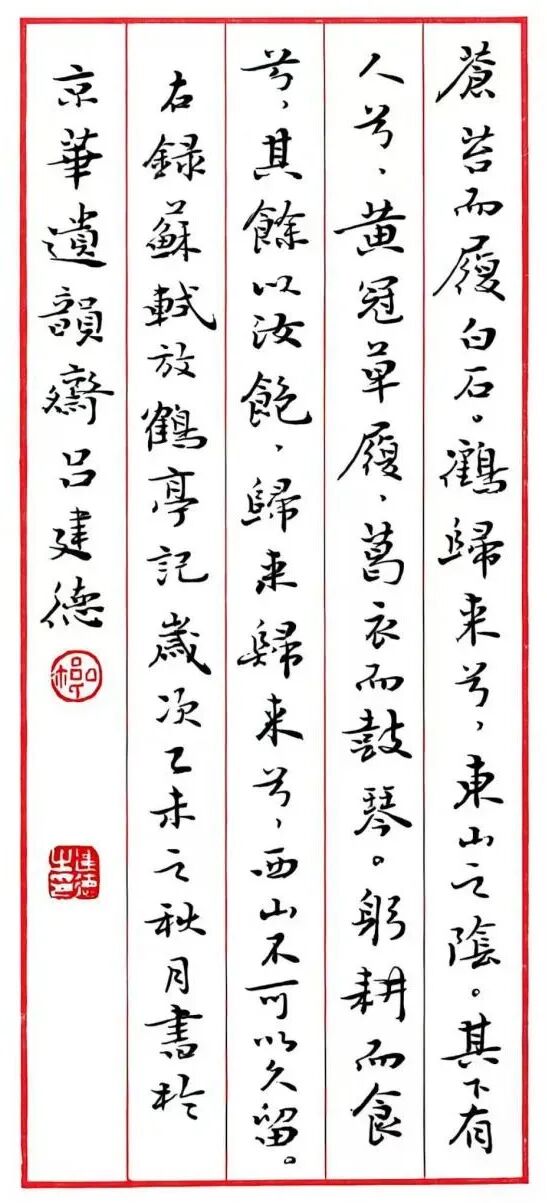 蒼苔而履白石。鶴歸來兮，東山之陰。其下有
人兮，黃冠草履，葛衣而鼓琴。躬耕而食
兮，其餘以汝飽，歸來歸來兮，西山不可以久留。
右録蘇軾放鶴亭記歲次乙未之秋月書於
京華遺韻齋呂建德
建德之印